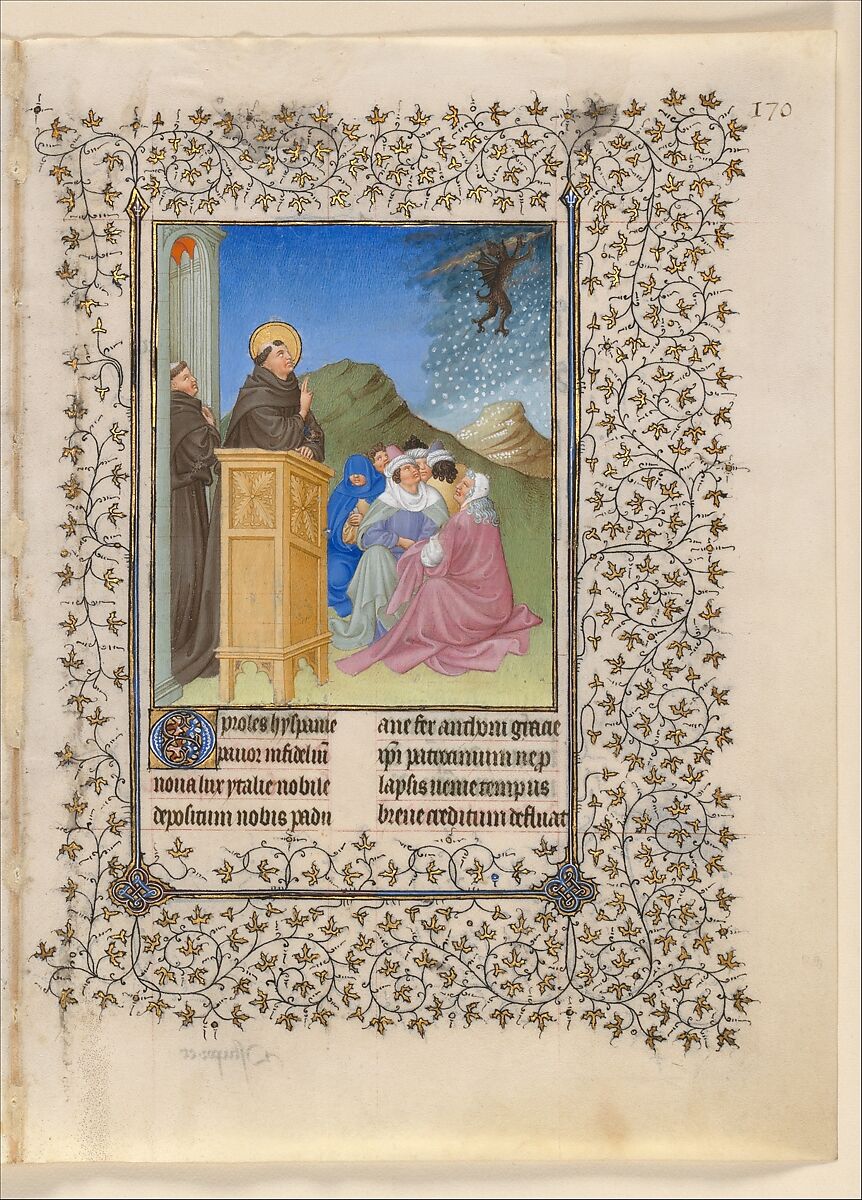 170
O proles hyspanie
pauor infideliū
noua lux ytalie nobile
depositum nobis padu
ane fer anthoni gracie
xp̄i patrocinium ne p
lapsis uenie tempus
breue creditum defluat